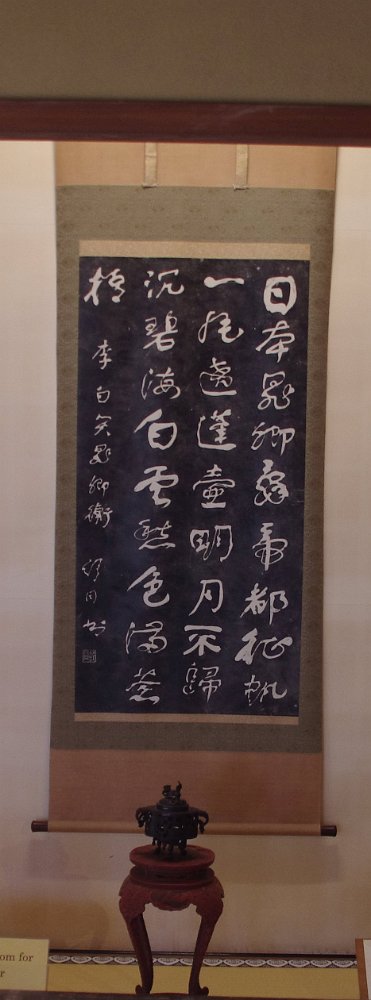 日本晁卿辭帝都征帆
一片遶蓬壺明月不歸
沉碧海白雲愁色滿蒼
梧
李白哭晁卿衡 舒同书
om for
r